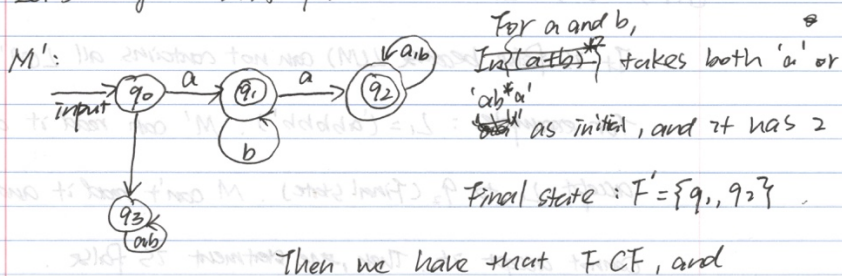 M':
input
q0
a
q1
a
q2
a,b
b
q3
a,b
For a and b,
takes both 'a' or
'ab*a'
as initial, and it has 2
Final state : F'={q1, q2}.
Then we have that F⊂F', and